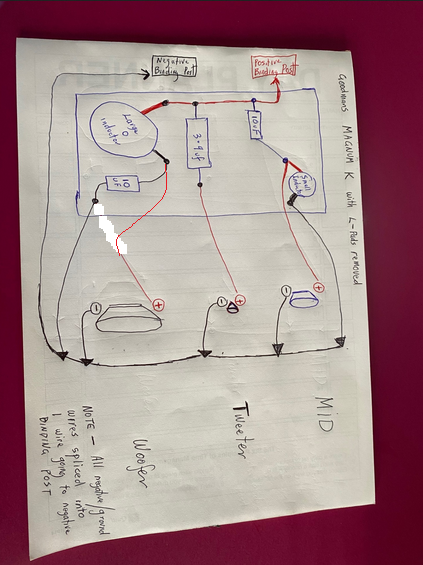 Goodmans MAGNUM K with L-Pads removed
Negative
Binding Post
Positive
Binding Post
Large
Inductor
3.9 uf
10uF
Small
10
UF
+
-
+
-
+
-
MID
Tweeter
Woofer
NOTE — All negative/ground
wires spliced into
1 wire going to negative
BINDING POST